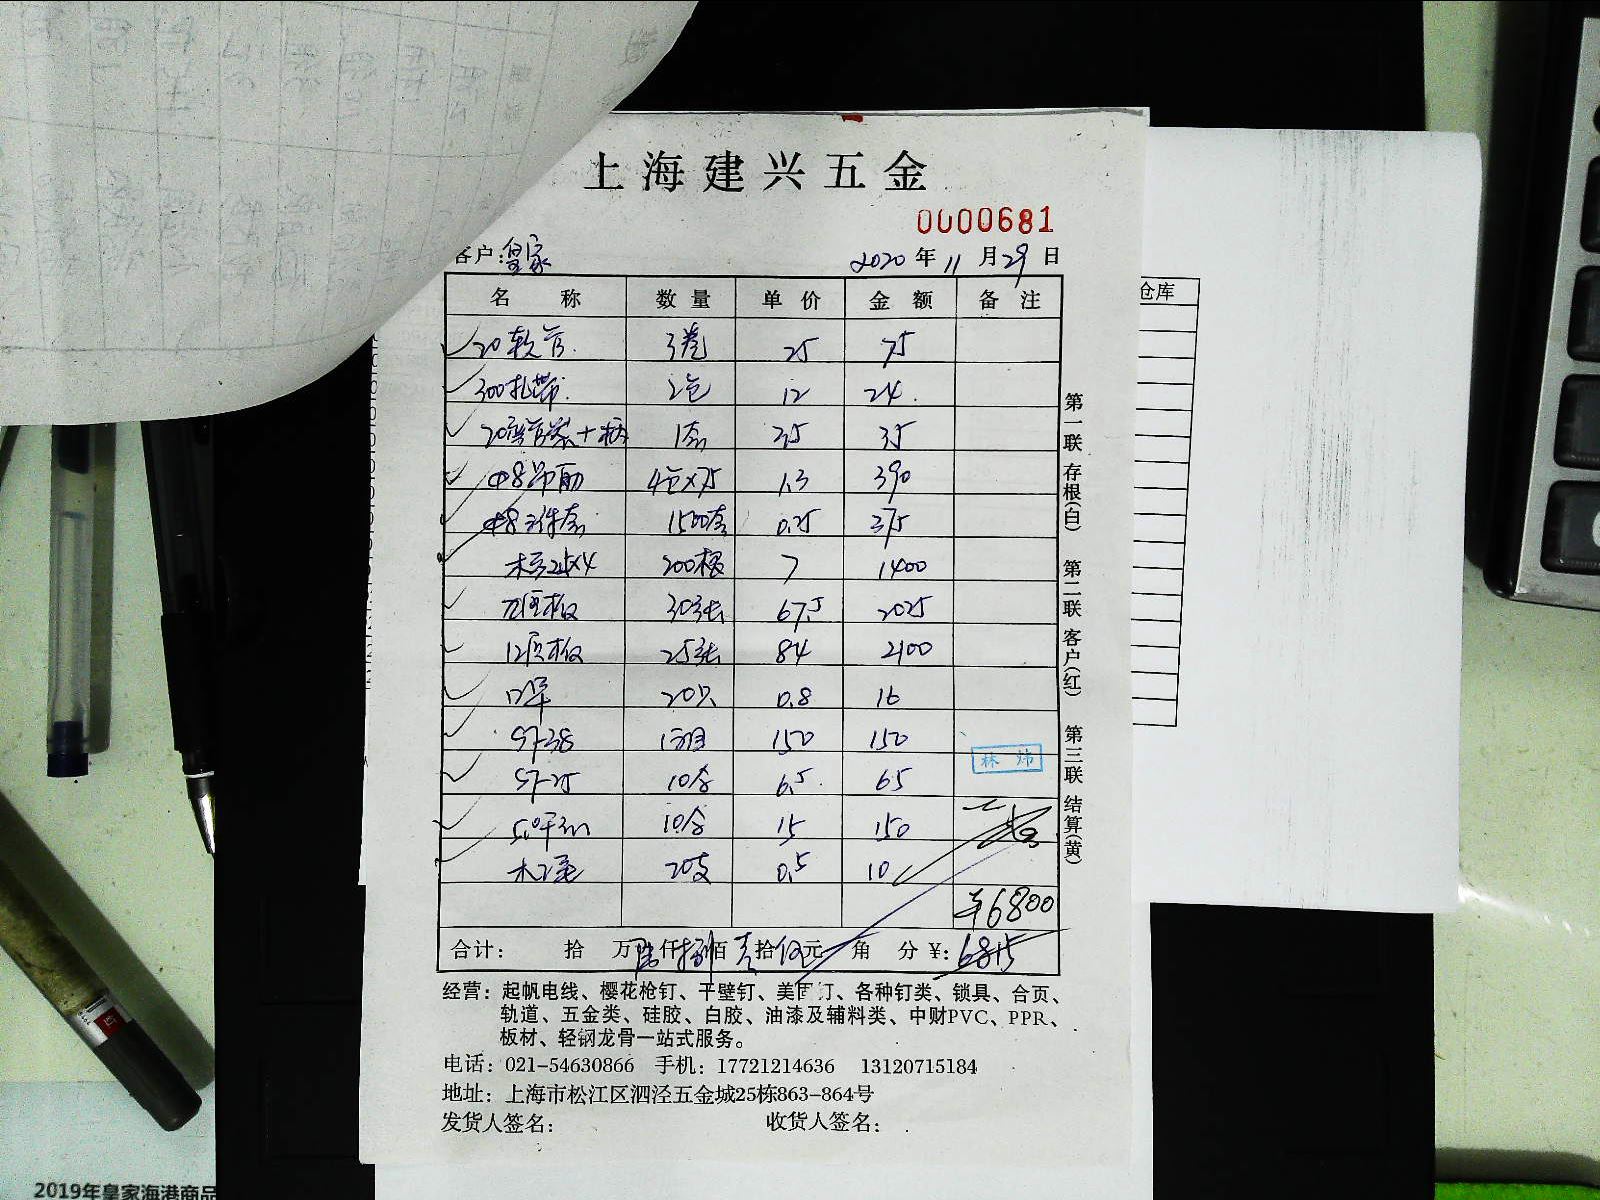 上海建兴五金
0000681
客户:皇家
2020年11月29日
名称 数量 单价 金额 备注
20软管 3卷 25 75
300扎带 2包 12 24
1套 35 35
φ8吊筋 4包×75 1.3 390
φ8三件套 1500套 0.25 375
200根 7 1400
九厘板 30张 67.5 2025
12厘板 25张 84 2100
20只 0.8 16
ST-38 1箱 150 150
ST-25 10盒 6.5 65
10盒 15 150
木工笔 20支 0.5 10
林炜
¥6800
合计: 拾 万陆仟捌佰壹拾伍元 角 分¥:6815
经营:起帆电线、樱花枪钉、干壁钉、美固钉、各种钉类、锁具、合页、
轨道、五金类、硅胶、白胶、油漆及辅料类、中财PVC、PPR、
板材、轻钢龙骨一站式服务。
电话:021-54630866 手机:17721214636 13120715184
地址:上海市松江区泗泾五金城25栋863-864号
发货人签名: 收货人签名:
第一联 存根(白) 第二联 客户(红) 第三联 结算(黄)
仓库
2019年皇家海港商品